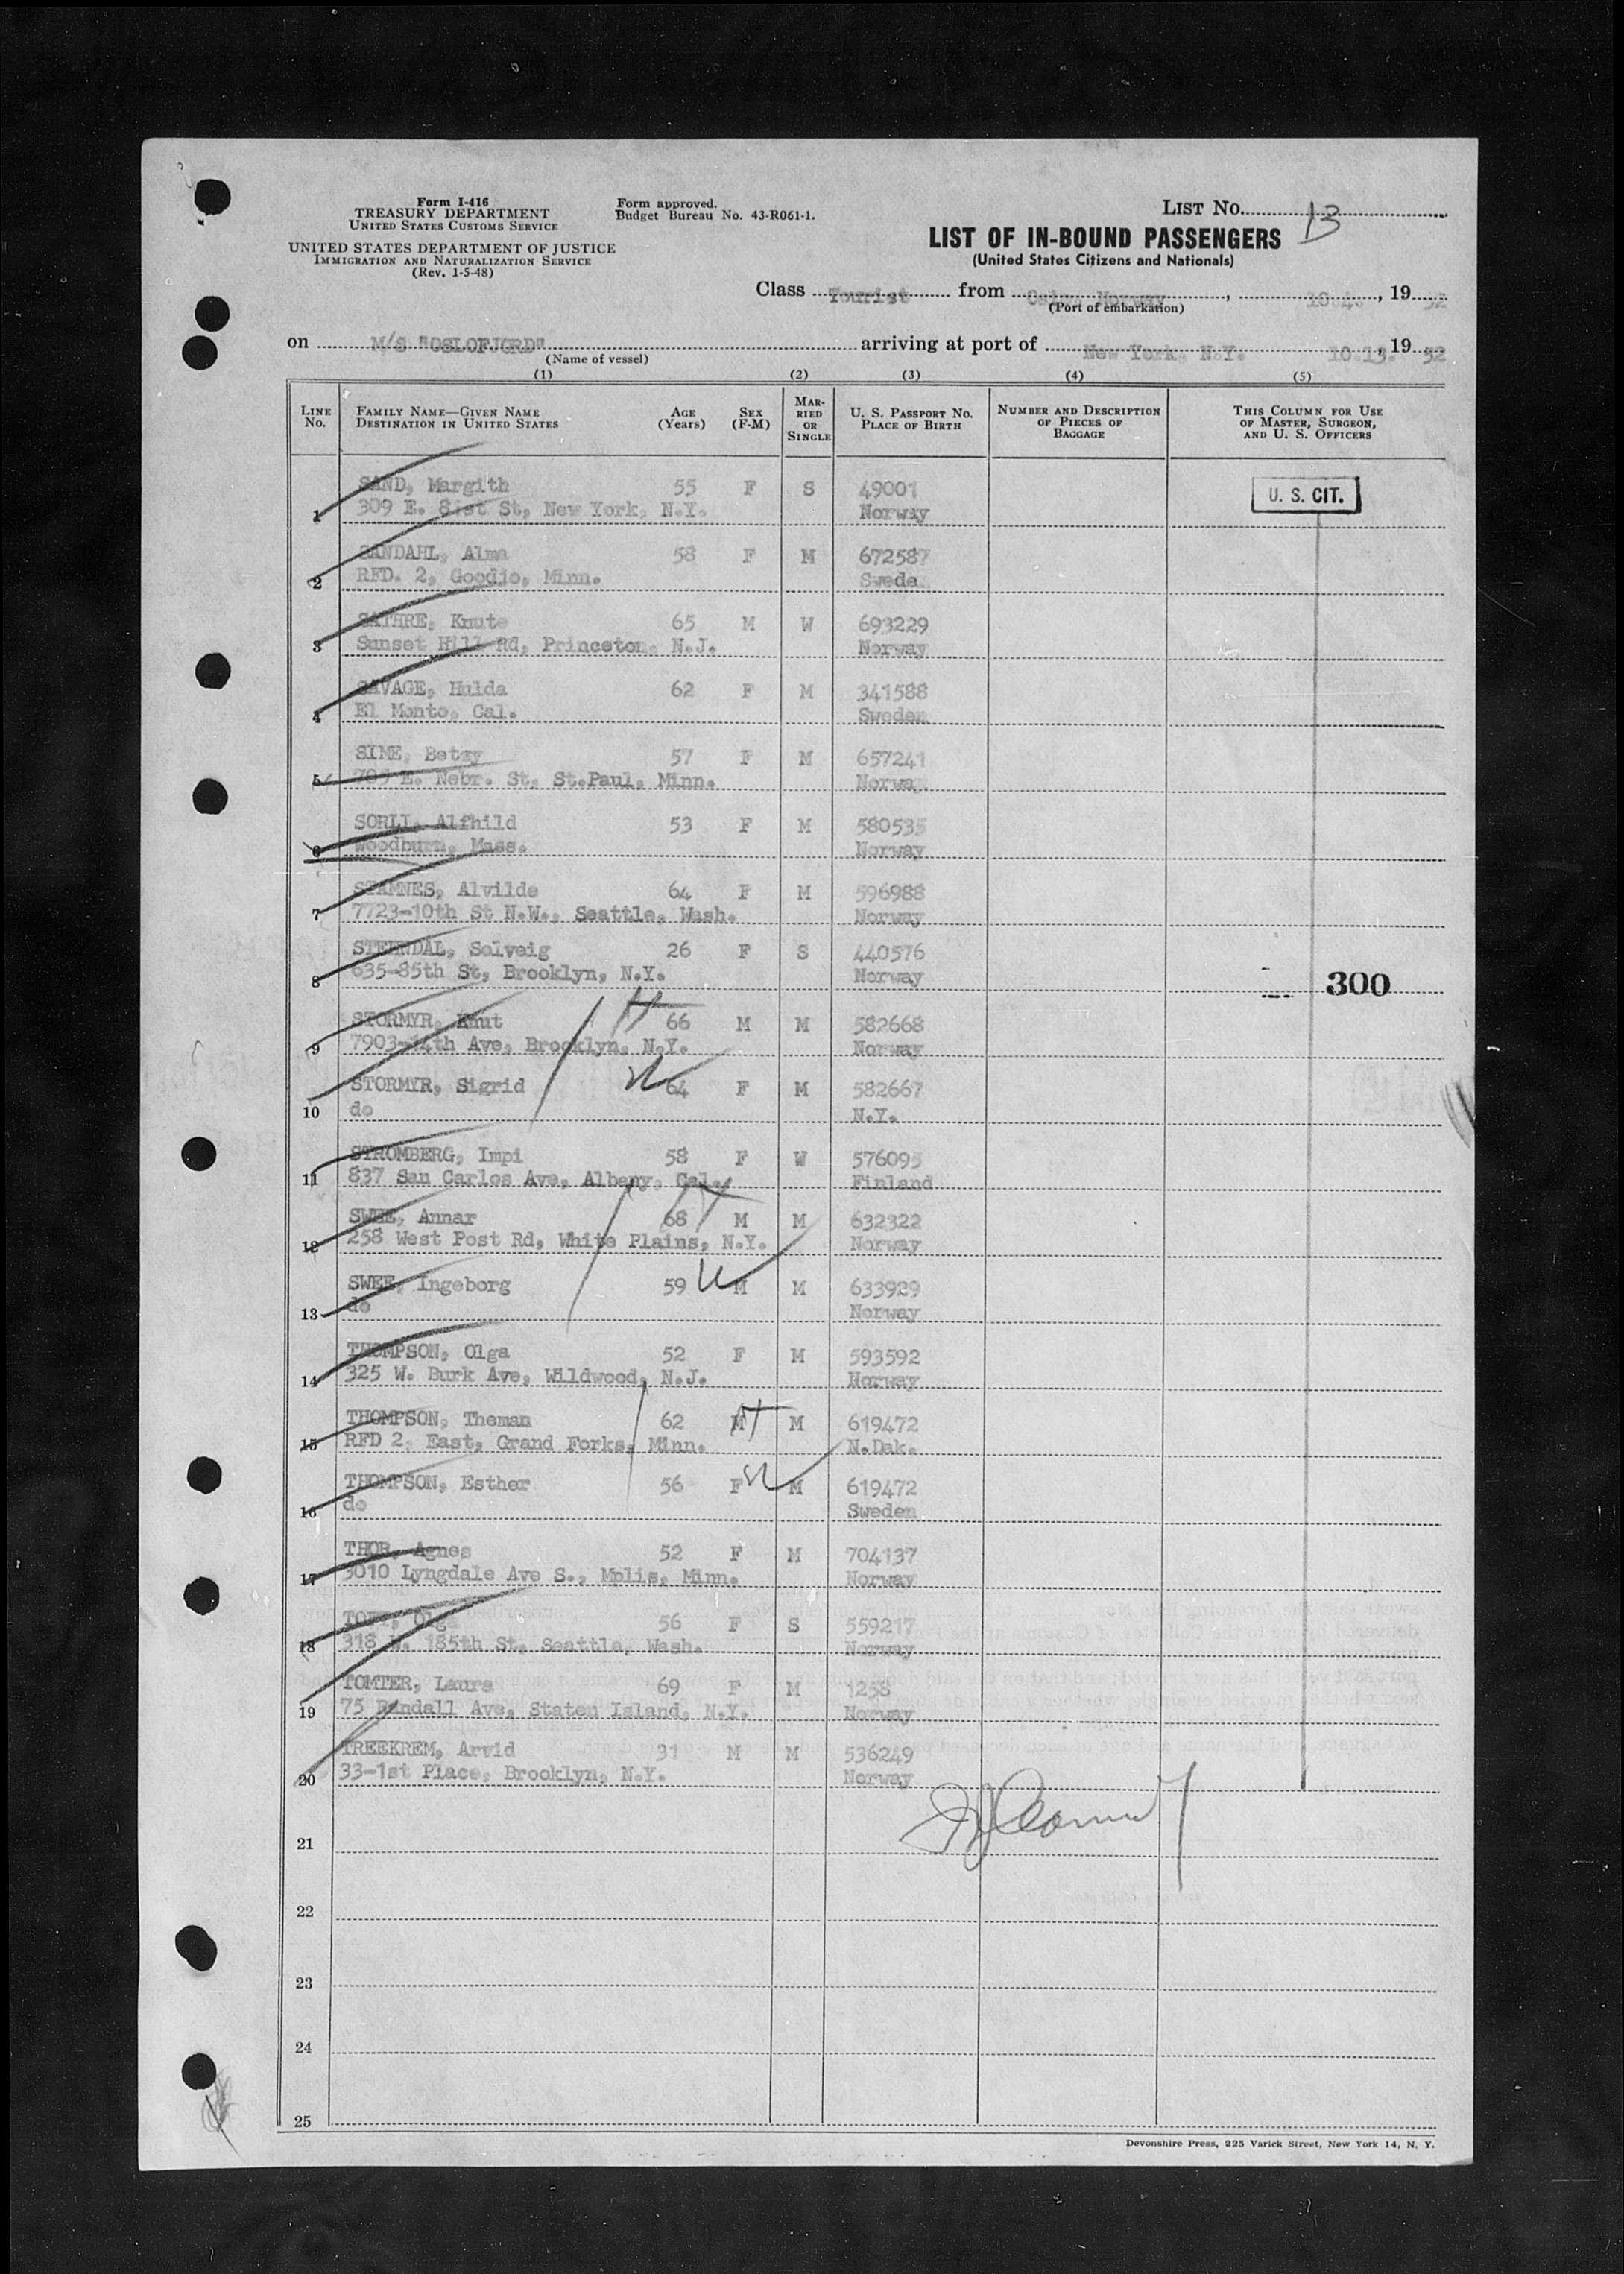 Form I-416
TREASURY DEPARTMENT
UNITED STATES CUSTOMS SERVICE
UNITED STATES DEPARTMENT OF JUSTICE
IMMIGRATION AND NATURALIZATION SERVICE
(Rev. 1-5-48)
Form approved.
Budget Bureau No. 43-R061-1.
LIST No. 13
LIST OF IN-BOUND PASSENGERS
(United States Citizens and Nationals)
Class Tourist from Oslo, Norway, 10.4., 19 52
(Port of embarkation)
on M/S "OSLOFJORD" arriving at port of New York, N.Y. 10.13., 19 52
(Name of vessel)
(1) (2) (3) (4) (5)
LINE No. FAMILY NAME—GIVEN NAME DESTINATION IN UNITED STATES AGE (Years) SEX (F-M) MARRIED OR SINGLE U. S. PASSPORT No. PLACE OF BIRTH NUMBER AND DESCRIPTION OF PIECES OF BAGGAGE THIS COLUMN FOR USE OF MASTER, SURGEON, AND U. S. OFFICERS
SAND, Margith 55 F S 49001 U. S. CIT.
1 309 E. 81st St, New York, N.Y. Norway
SANDAHL, Alma 58 F M 672587
2 RFD. 2, Goodjo, Minn. Swede
SATHRE, Knute 65 M W 693229
3 Sunset Hill Rd, Princeton, N.J. Norway
SAVAGE, Hulda 62 F M 341588
4 El Monto, Cal. Sweden
SIME, Betzy 57 F M 657241
5 E. Nebr. St, St.Paul, Minn. Norway
SORLI, Alfhild 53 F M 580535
6 Woodburn, Mass. Norway
STAMNES, Alvilde 64 F M 596988
7 7723-10th St N.W., Seattle, Wash. Norway
STEENDAL, Solveig 26 F S 440576
8 635-85th St, Brooklyn, N.Y. Norway 300
STORMYR, Knut 66 M M 582668
9 7903-14th Ave, Brooklyn, N.Y. Norway
STORMYR, Sigrid 64 F M 582667
10 do N.Y.
STROMBERG, Impi 58 F W 576095
11 837 San Carlos Ave, Albany, Cal. Finland
SWEE, Annar 68 M M 632322
12 258 West Post Rd, White Plains, N.Y. Norway
SWEE, Ingeborg 59 M M 633929
13 do Norway
THOMPSON, Olga 52 F M 593592
14 325 W. Burk Ave, Wildwood, N.J. Norway
THOMPSON, Theman 62 M M 619472
15 RFD 2, East, Grand Forks, Minn. N.Dak.
THOMPSON, Esther 56 F M 619472
16 do Sweden
THOR, Agnes 52 F M 704137
17 3010 Lyngdale Ave S., Mplis, Minn. Norway
TOFT, Olga 56 F S 559217
18 318 N. 185th St, Seattle, Wash. Norway
TOMTER, Laura 69 F M 1258
19 75 Randall Ave, Staten Island, N.Y. Norway
TREEKREM, Arvid 31 M M 536249
20 33-1st Place, Brooklyn, N.Y. Norway
21
22
23
24
25
Devonshire Press, 225 Varick Street, New York 14, N. Y.